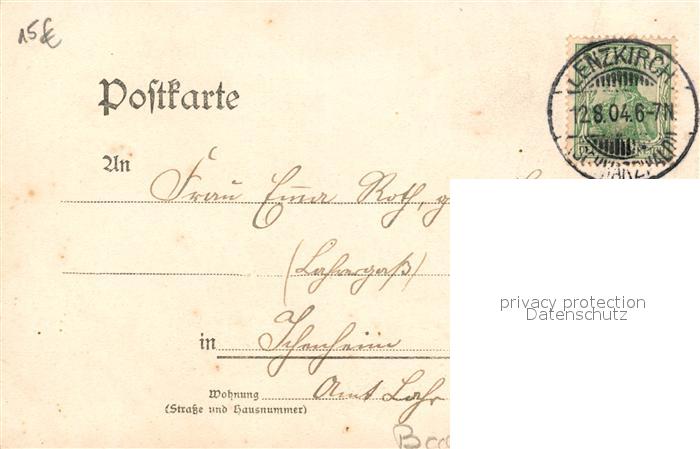 15€
LENZKIRCH
12.8.04.6-7N.
(SCHWARZWALD)
Postkarte
An Frau Emma Roth, g
(Lahrergaß)
in Ichenheim
Wohnung Amt Lahr
(Straße und Hausnummer)
privacy protection
Datenschutz